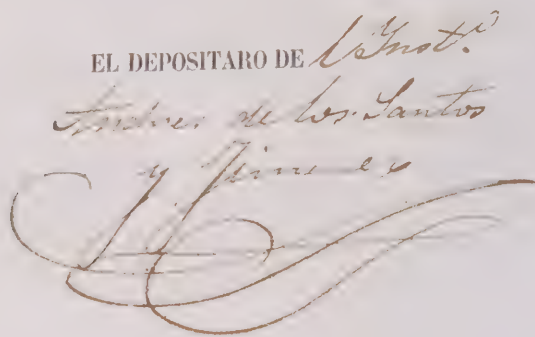 EL DEPOSITARO DE l Ynst.º
Andres de los Santos
y Jimenez